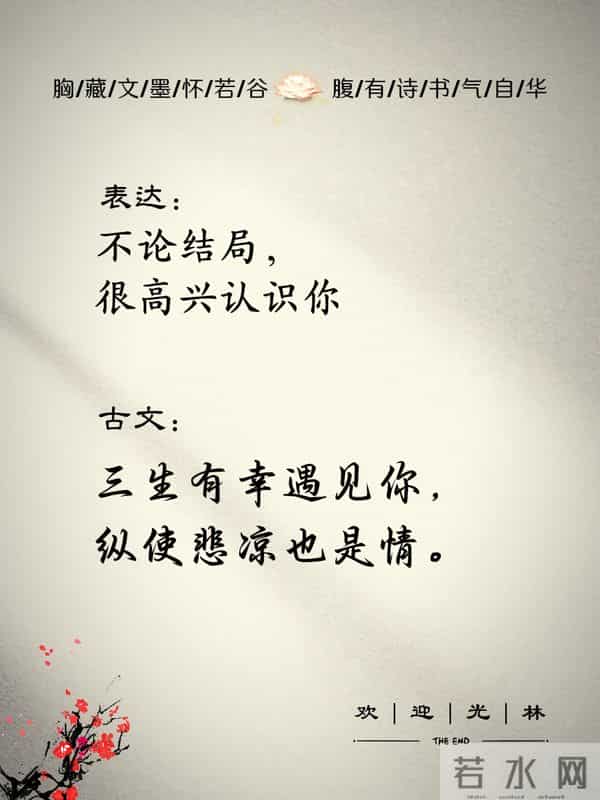 胸/藏/文/墨/怀/若/谷 腹/有/诗/书/气/自/华
表达：
不论结局，
很高兴认识你
古文：
三生有幸遇见你，
纵使悲凉也是情。
欢|迎|光|林
THE END
若水网